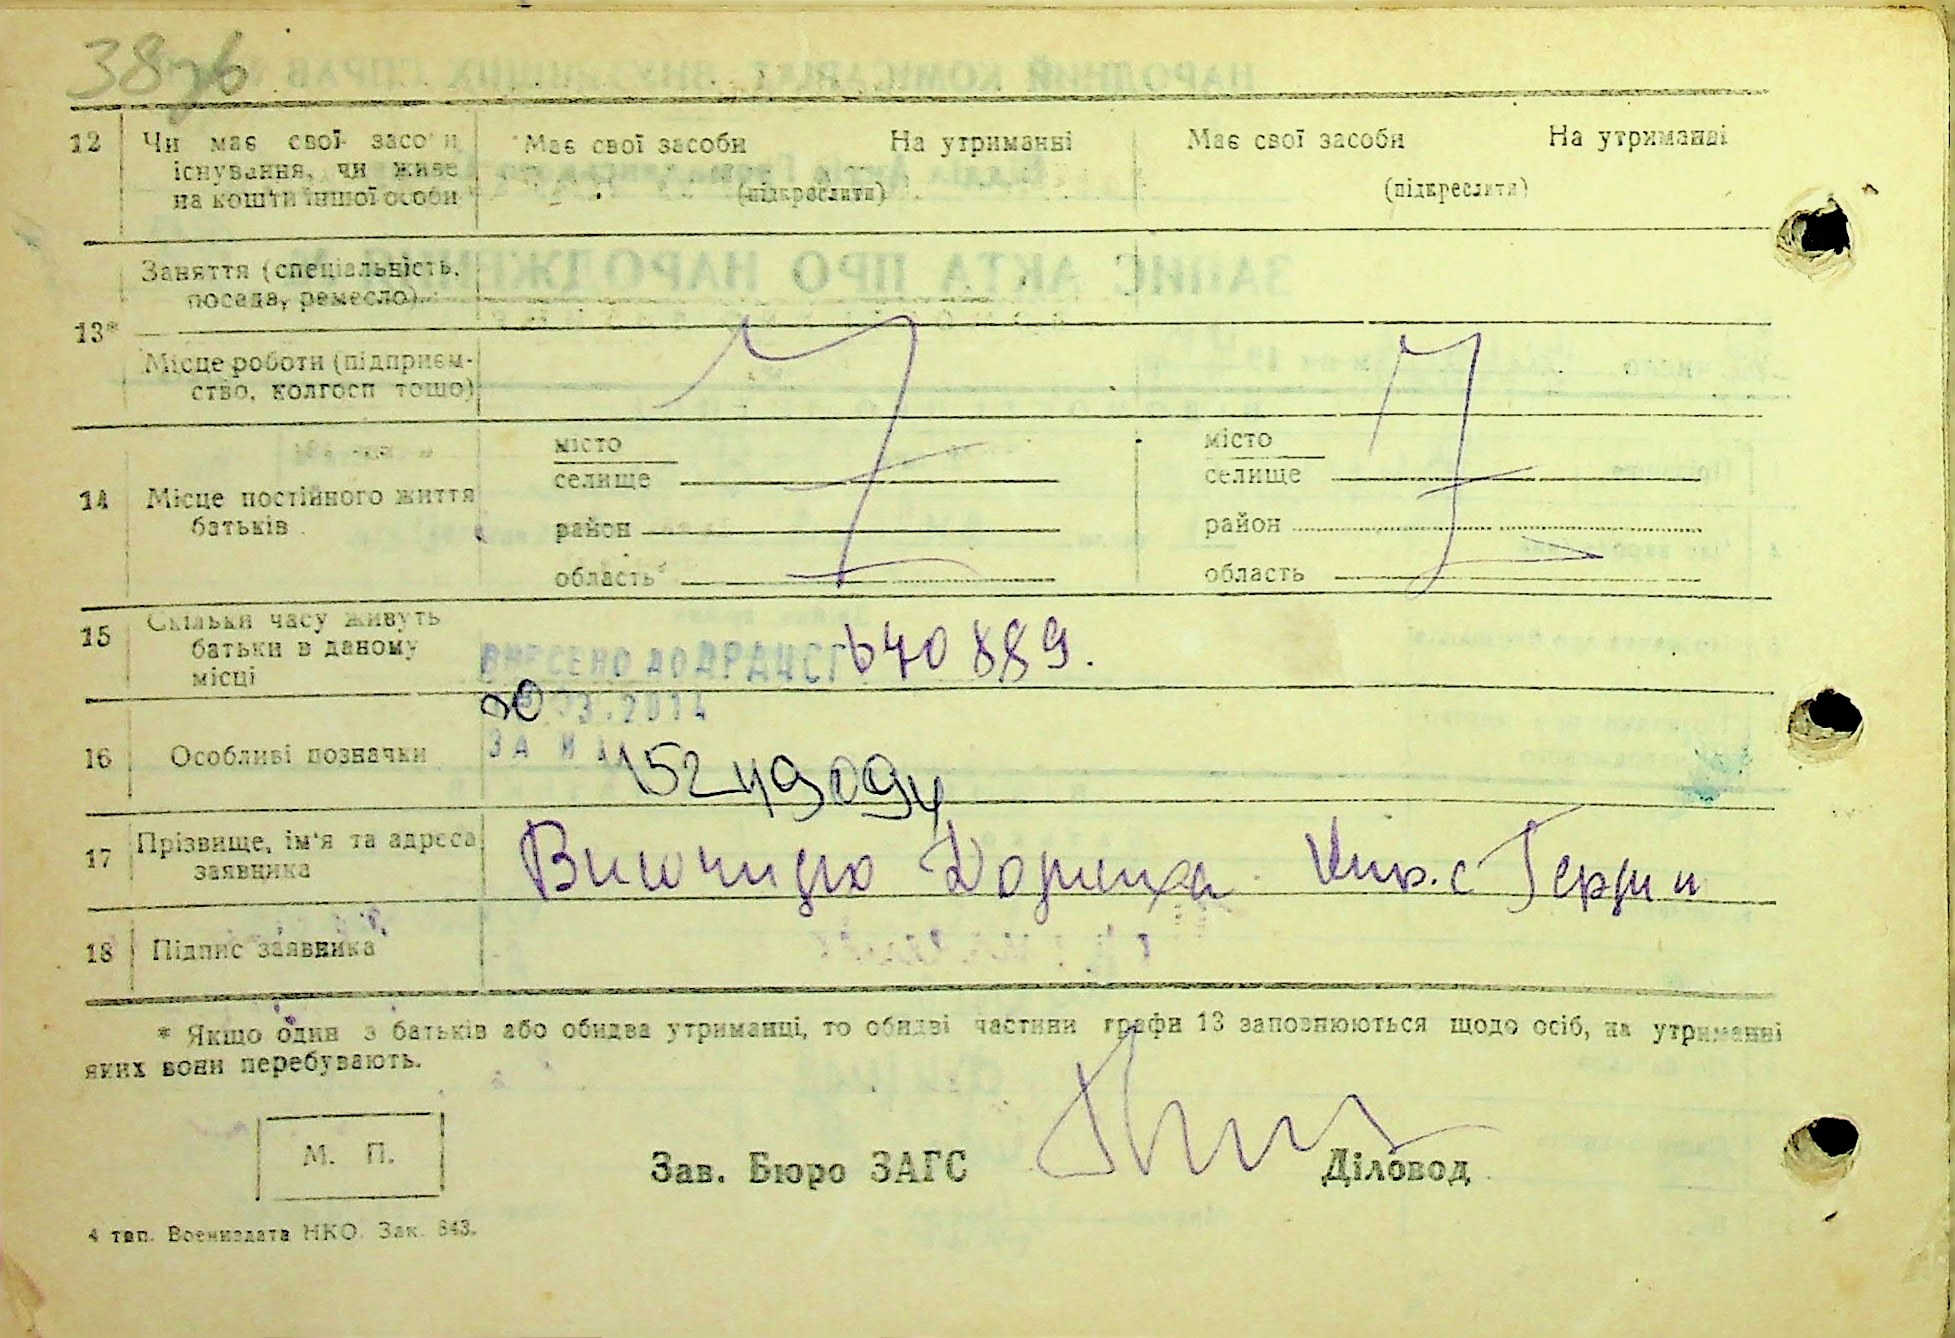 38зв
12 Чи має свої засоби Має свої засоби На утриманні Має свої засоби На утриманні
існування, чи живе
на кошти іншої особи (підкреслити) (підкреслити)
Заняття (спеціальність,
посада, ремесло)
13*
Місце роботи (підприєм-
ство, колгосп тощо)
місто місто
селище селище
14 Місце постійного життя
батьків
район район
область область
15 Скільки часу живуть
батьки в даному
місці
ВНЕСЕНО ДО ДРАЦСГ 640889.
03.2014
16 Особливі позначки
ЗА №
17 Прізвище, ім'я та адреса
заявника
18 Підпис заявника
* Якщо один з батьків або обидва утриманці, то обидві частини графи 13 заповнюються щодо осіб, на утриманні
яких вони перебувають.
М. П.
Зав. Бюро ЗАГС Діловод
4 тип. Воениздата НКО. Зак. 843.